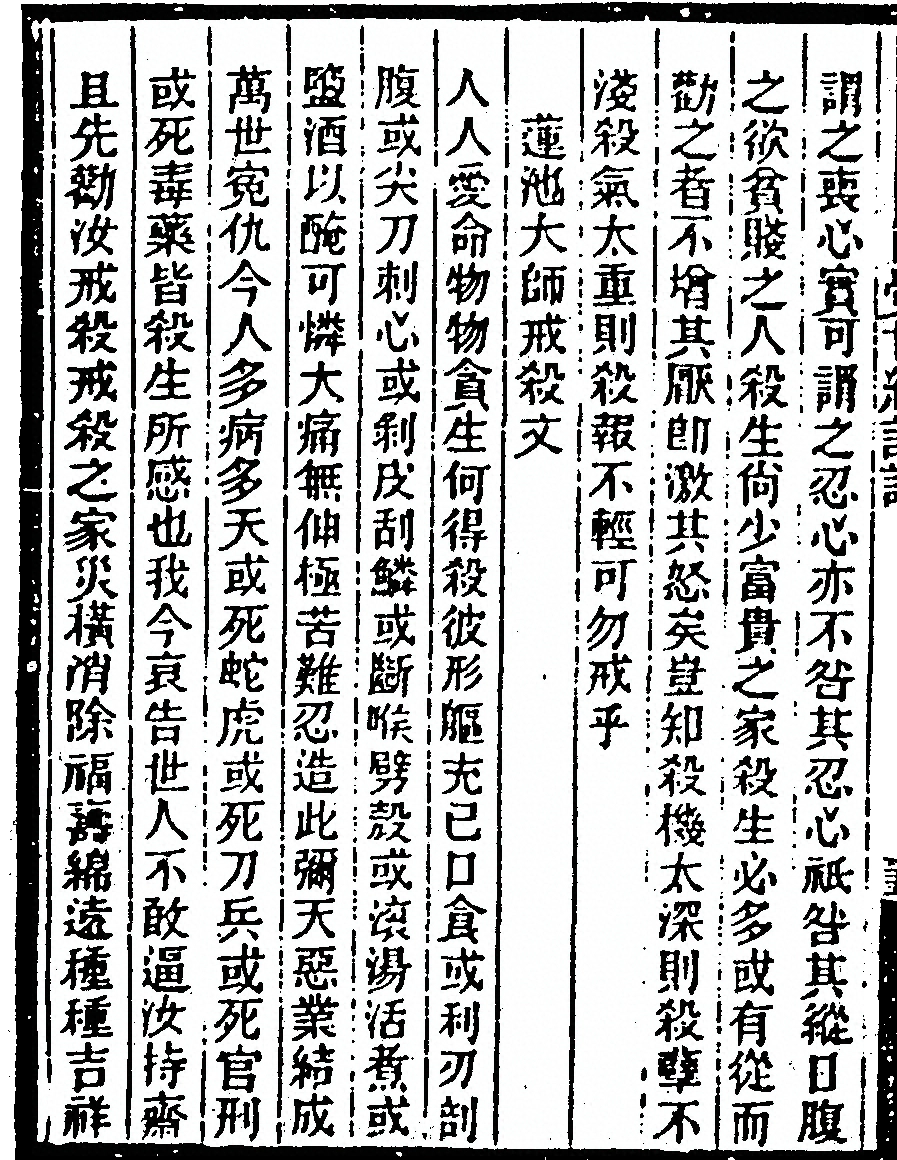 謂之喪心實可謂之忍心亦不咎其忍心祇咎其縱口腹
之欲貧賤之人殺生尙少富貴之家殺生必多或有從而
勸之者不增其厭卽激其怒矣豈知殺機太深則殺孽不
淺殺氣太重則殺報不輕可勿戒乎
蓮池大師戒殺文
人人愛命物物貪生何得殺彼形軀充己口食或利刃剖
腹或尖刀刺心或剥皮刮鱗或斷喉劈殼或滾湯活煮或
鹽酒以醃可憐大痛無伸極苦難忍造此彌天惡業結成
萬世寃仇今人多病多夭或死蛇虎或死刀兵或死官刑
或死毒藥皆殺生所感也我今哀告世人不敢逼汝持齋
且先勸汝戒殺戒殺之家災橫消除福壽綿遠種種吉祥